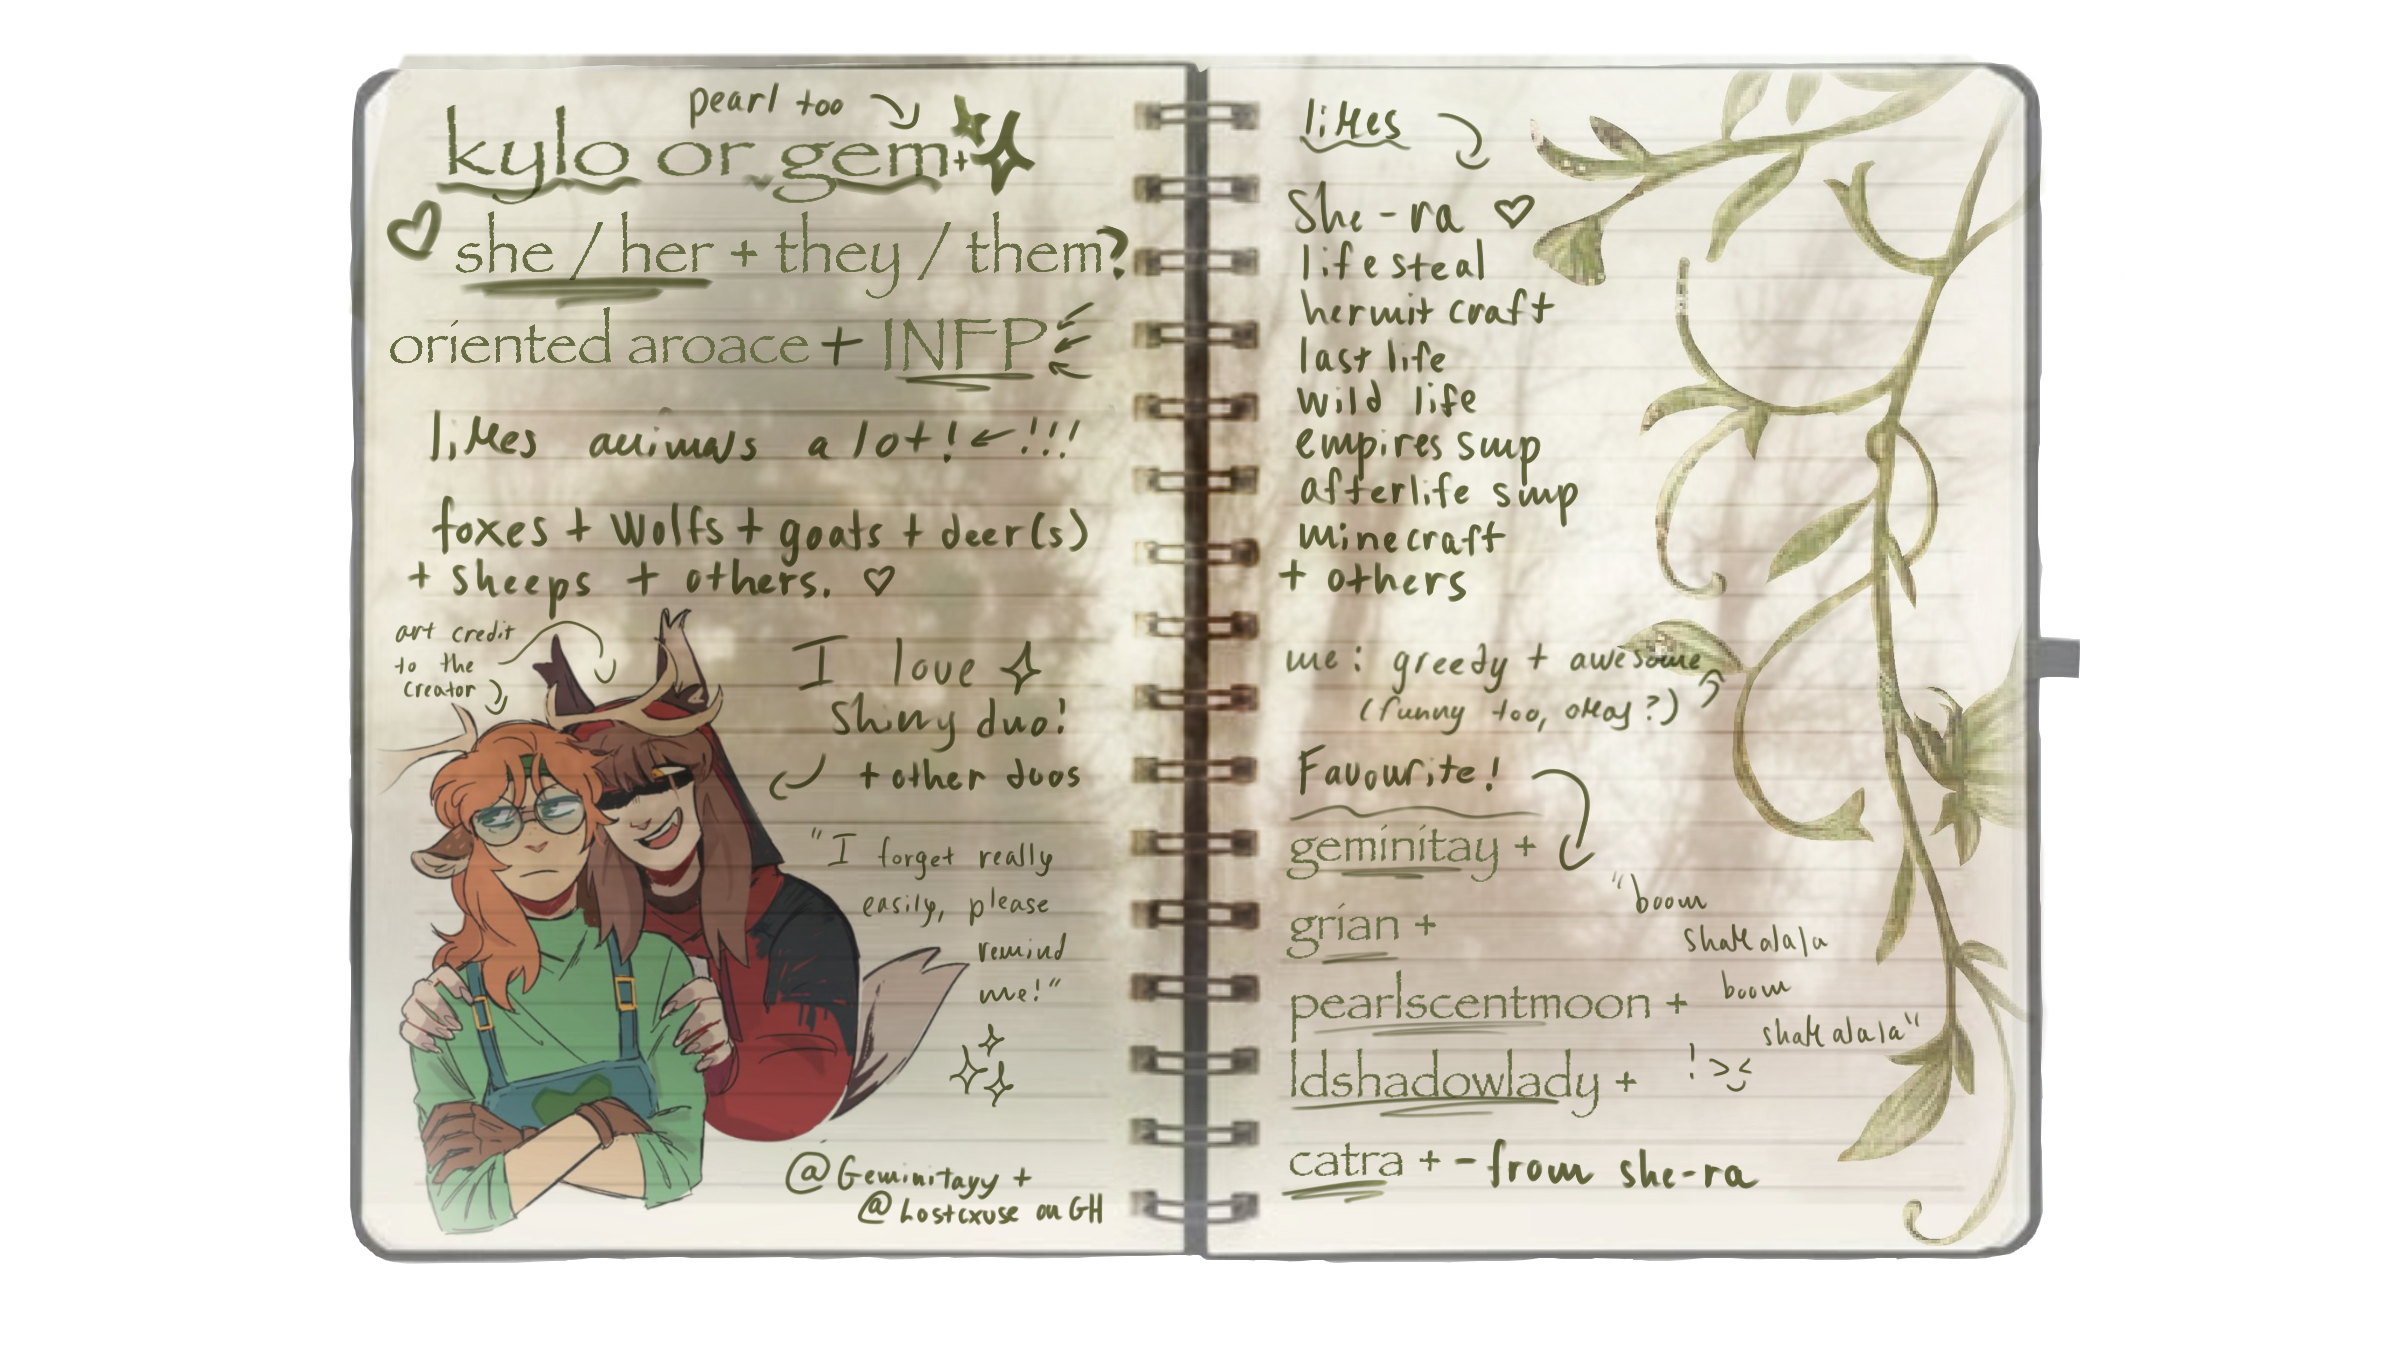 pearl too
kylo or gem +
she / her + they / them?
oriented aroace + INFP
likes animals a lot! ← !!!
foxes + wolfs + goats + deer(s)
+ sheeps + others. ♡
art credit
to the
creator
I love
Shiny duo!
+ other duos
"I forget really
easily, please
remind
me!"
@Geminitayy +
@Lostcxuse on GH
likes
She-ra ♡
lifesteal
hermitcraft
last life
wild life
empires smp
afterlife smp
minecraft
+ others
me: greedy + awesome
(funny too, okay?)
Favourite!
geminitay +
grian +
pearlscentmoon +
ldshadowlady +
catra + - from she-ra
"boom
shakalala
boom
shakalala"
! >⌣<